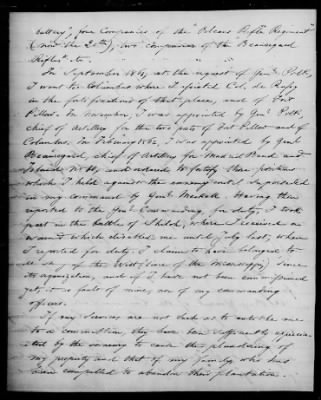 battery", four Companies of the "Orleans Rifle Regiment"
(now the 20th), two companies of the Beauregard
Rifles &c.
In September 1861, at the request of Genl. Polk,
I went to Columbus where I assisted Col. de
in the fortifications of that place, and of Fort
Pillow. In November, I was appointed by Genl. Polk,
chief of Artillery for the two posts of Fort Pillow and of
Columbus. In February 1862, I was appointed by Genl.
Beauregard, chief of Artillery for Madrid Bend and
Island No. 10, and ordered to fortify these positions
which I held against the enemy until superseded
in my command by Genl. Mackall. Having then
reported to the Genl. Commanding, for duty, I took
part in the battle of Shiloh, where I received a
wound which disabled me until July last; when
I reported for duty. I claim to have belonged to
the in the West (line of the Mississippi) since
its organization, and if I have not been commissioned
yet, it is fault of mine, nor of my commanding
officers.
If my services are not such as to entitle me
to a commission, they have been sufficiently appreciated
by the enemy to cause the plundering of
my property and that of my family, who has
been compelled to abandon their plantation.